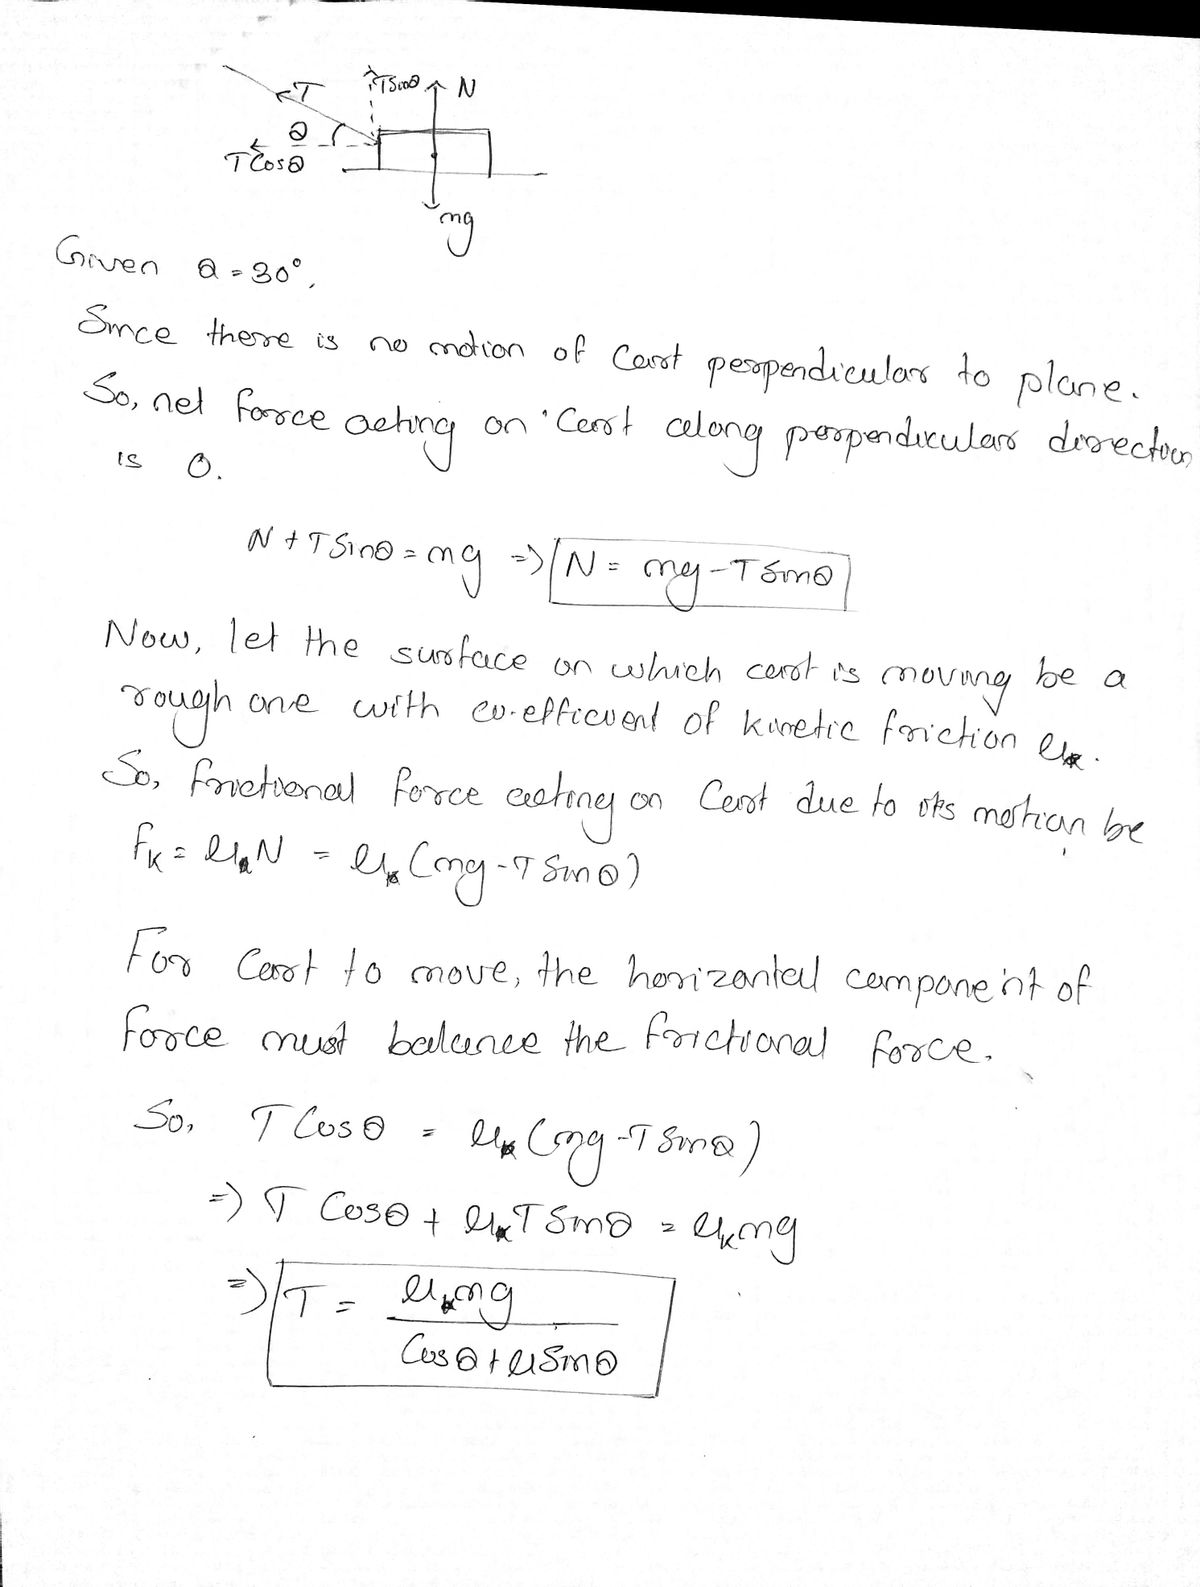 T
TSinθ
N
θ
TCosθ
mg
Given θ = 30°,
Since there is no motion of Cart perpendicular to plane.
So, net force acting on Cart along perpendicular direction
is 0.
N + TSinθ = mg => N = mg - TSinθ
Now, let the surface on which cart is moving be a
rough one with co-efficient of kinetic friction μk.
So, frictional force acting on Cart due to its motion be
fK = μkN = μk (mg - TSinθ)
For Cart to move, the horizontal component of
force must balance the frictional force.
So, TCosθ = μk (mg - TSinθ)
=) T Cosθ + μkTSinθ = μkmg
=) T = μkmg
Cosθ + μSinθ